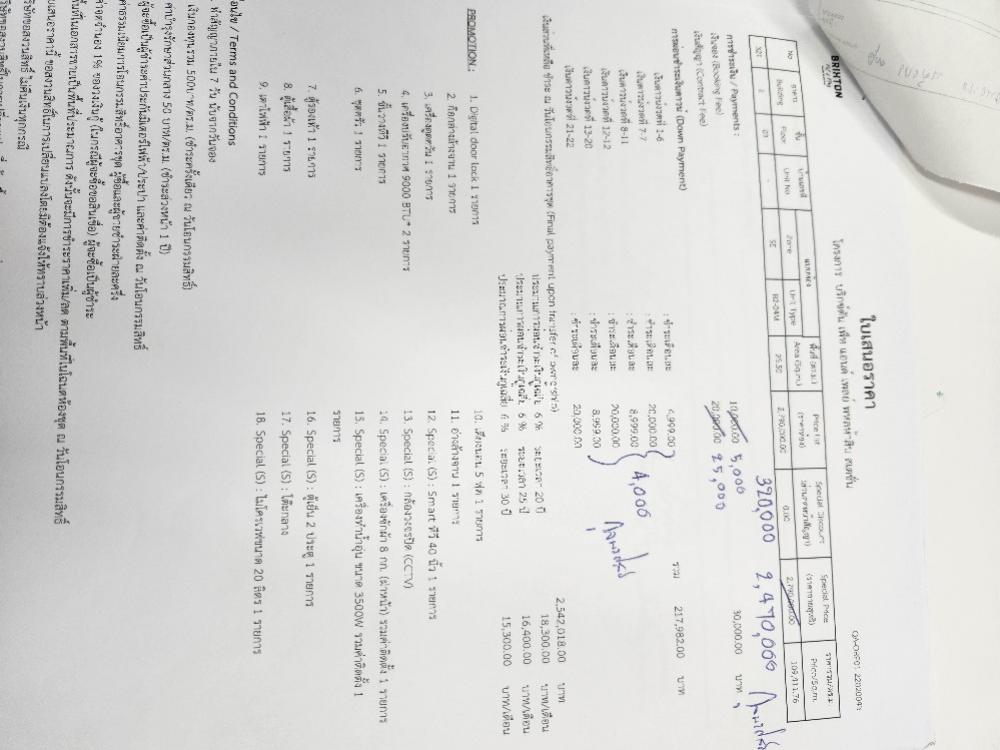 BRIXTON
QA-OHP01-22020043
ใบเสนอราคา
โครงการ บริกซ์ตัน เพ็ท แอนด์ เพลย์ พหลห้าสิบ สเตชั่น
No อาคาร ชั้น บ้านเลขที่ แบบห้อง พื้นที่ (ตร.ม.) Price List Special Discount Special Price ราคารวม/ตร.ม.
Building Floor Unit No Zone Unit Type Area (Sq.m.) (ราคาขาย) (ส่วนลดหน้าสัญญา) (ราคาขายสุทธิ) Price/Sq.m.
01 - SE 25.50 0.00 109,411.76
320,000 2,470,000
การชำระเงิน / Payments :
เงินจอง (Booking Fee) 10,000.00 5,000 30,000.00 บาท
เงินสัญญา (Contract Fee) 20,000.00 25,000
การผ่อนชำระเงินดาวน์ (Down Payment) รวม 217,982.00 บาท
เงินดาวน์งวดที่ 1-6 : ชำระเดือนละ 8,999.00
เงินดาวน์งวดที่ 7-7 : ชำระเดือนละ 20,000.00
เงินดาวน์งวดที่ 8-11 : ชำระเดือนละ 8,999.00 4,000
เงินดาวน์งวดที่ 12-12 : ชำระเดือนละ 20,000.00
เงินดาวน์งวดที่ 13-20 : ชำระเดือนละ 8,999.00
เงินดาวน์งวดที่ 21-22 : ชำระเดือนละ 20,000.00
เงินส่วนที่เหลือ ชำระ ณ วันโอนกรรมสิทธิ์อาคารชุด (Final payment upon transfer of ownership) 2,542,018.00 บาท
ประมาณการผ่อนชำระเงินกู้เฉลี่ย 6 % ระยะเวลา 20 ปี 18,300.00 บาท/เดือน
ประมาณการผ่อนชำระเงินกู้เฉลี่ย 6 % ระยะเวลา 25 ปี 16,400.00 บาท/เดือน
ประมาณการผ่อนชำระเงินกู้เฉลี่ย 6 % ระยะเวลา 30 ปี 15,300.00 บาท/เดือน
PROMOTION :
1. Digital door lock 1 รายการ
2. ก๊อกอ่างล้างจาน 1 รายการ
3. เครื่องดูดควัน 1 รายการ
4. เครื่องปรับอากาศ 9000 BTU* 2 รายการ
5. ชั้นวางทีวี 1 รายการ
6. ชุดครัว 1 รายการ
7. ตู้รองเท้า 1 รายการ
8. ตู้เสื้อผ้า 1 รายการ
9. เตาไฟฟ้า 1 รายการ
10. เตียงนอน 5 ฟุต 1 รายการ
11. อ่างล้างจาน 1 รายการ
12. Special (S) : Smart ทีวี 40 นิ้ว 1 รายการ
13. Special (S) : กล้องวงจรปิด (CCTV)
14. Special (S) : เครื่องซักผ้า 8 กก. (ฝาหน้า) รวมค่าติดตั้ง 1 รายการ
15. Special (S) : เครื่องทำน้ำอุ่น ขนาด 3500W รวมค่าติดตั้ง 1
รายการ
16. Special (S) : ตู้เย็น 2 ประตู 1 รายการ
17. Special (S) : โต๊ะกลาง
18. Special (S) : ไมโครเวฟขนาด 20 ลิตร 1 รายการ
อนไข / Terms and Conditions
ทำสัญญาภายใน 7 วัน นับจากวันจอง
เงินกองทุนรวม 500บาท/ตร.ม. (ชำระครั้งเดียว ณ วันโอนกรรมสิทธิ์)
ค่าบำรุงรักษาส่วนกลาง 50 บาท/ตร.ม. (ชำระล่วงหน้า 1 ปี)
ผู้จะซื้อเป็นผู้ชำระค่าประกันมิเตอร์ไฟฟ้า/ประปา และค่าติดตั้ง ณ วันโอนกรรมสิทธิ์
ค่าธรรมเนียมการโอนกรรมสิทธิ์อาคารชุด ผู้ซื้อและผู้ขายชำระฝ่ายละครึ่ง
ค่าจดจำนอง 1% ของวงเงินกู้ (ในกรณีผู้จะซื้อขอสินเชื่อ) ผู้จะซื้อเป็นผู้ชำระ
นที่ในเอกสารขายเป็นพื้นที่ประมาณการ ดังนั้นจะมีการชำระราคาเพิ่ม/ลด ตามพื้นที่ในโฉนดห้องชุด ณ วันโอนกรรมสิทธิ์
บเสนอราคานี้ ขอสงวนสิทธิ์ในการเปลี่ยนแปลงโดยมิต้องแจ้งให้ทราบล่วงหน้า
ริษัทขอสงวนสิทธิ์ ไม่คืนเงินทุกกรณี